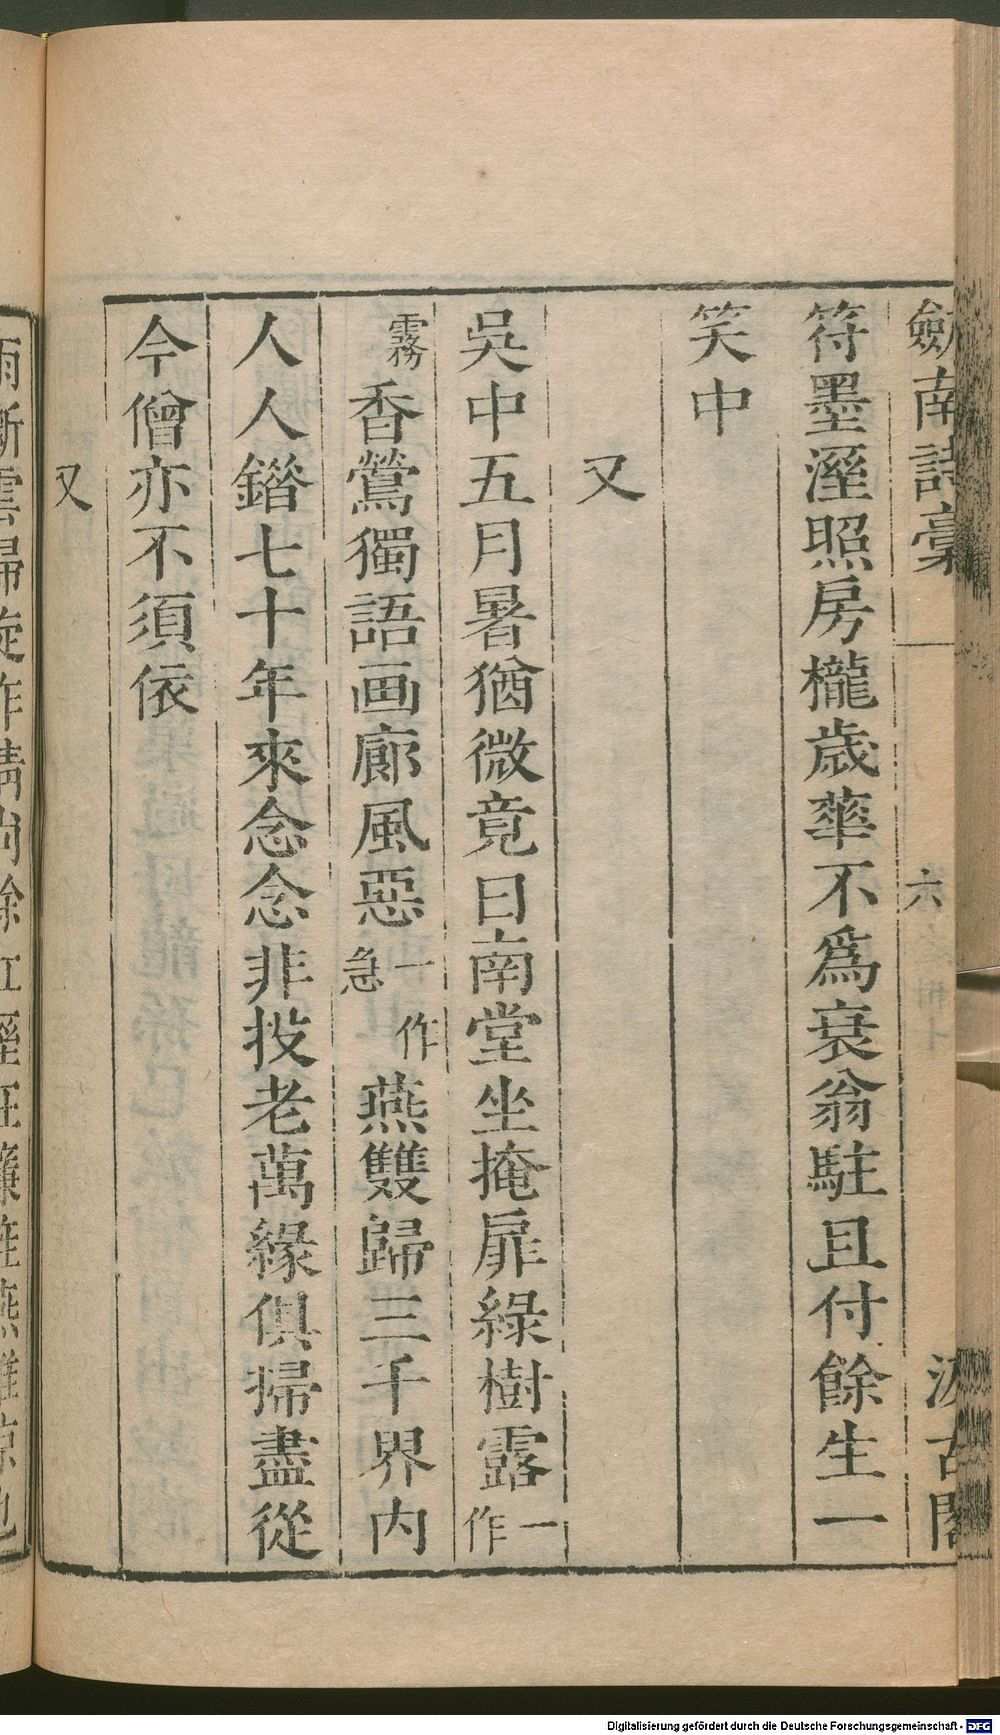 劍南詩稾
六
汲古閣
符墨溼照房櫳歲華不爲衰翁駐且付餘生一
笑中
又
吳中五月暑猶微竟日南堂坐掩扉綠樹露一作
霧香鶯獨語画廊風惡一作急燕雙歸三千界内
人人鍇七十年來念念非投老萬緣俱掃盡從
今僧亦不須依
又
Digitalisierung gefördert durch die Deutsche Forschungsgemeinschaft - DFG